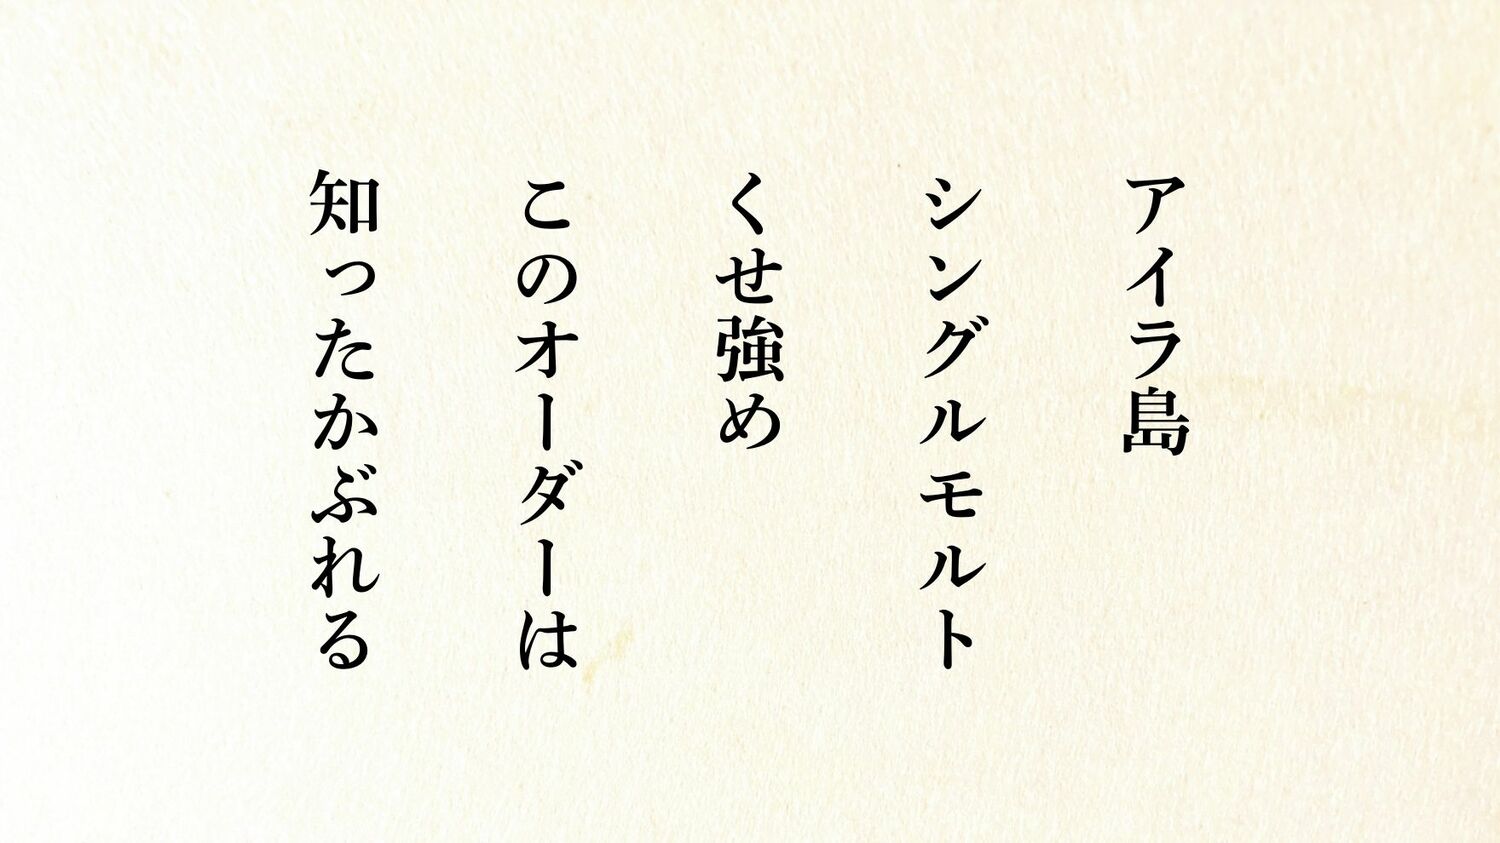 アイラ島
シングルモルト
くせ強め
このオーダーは
知ったかぶれる